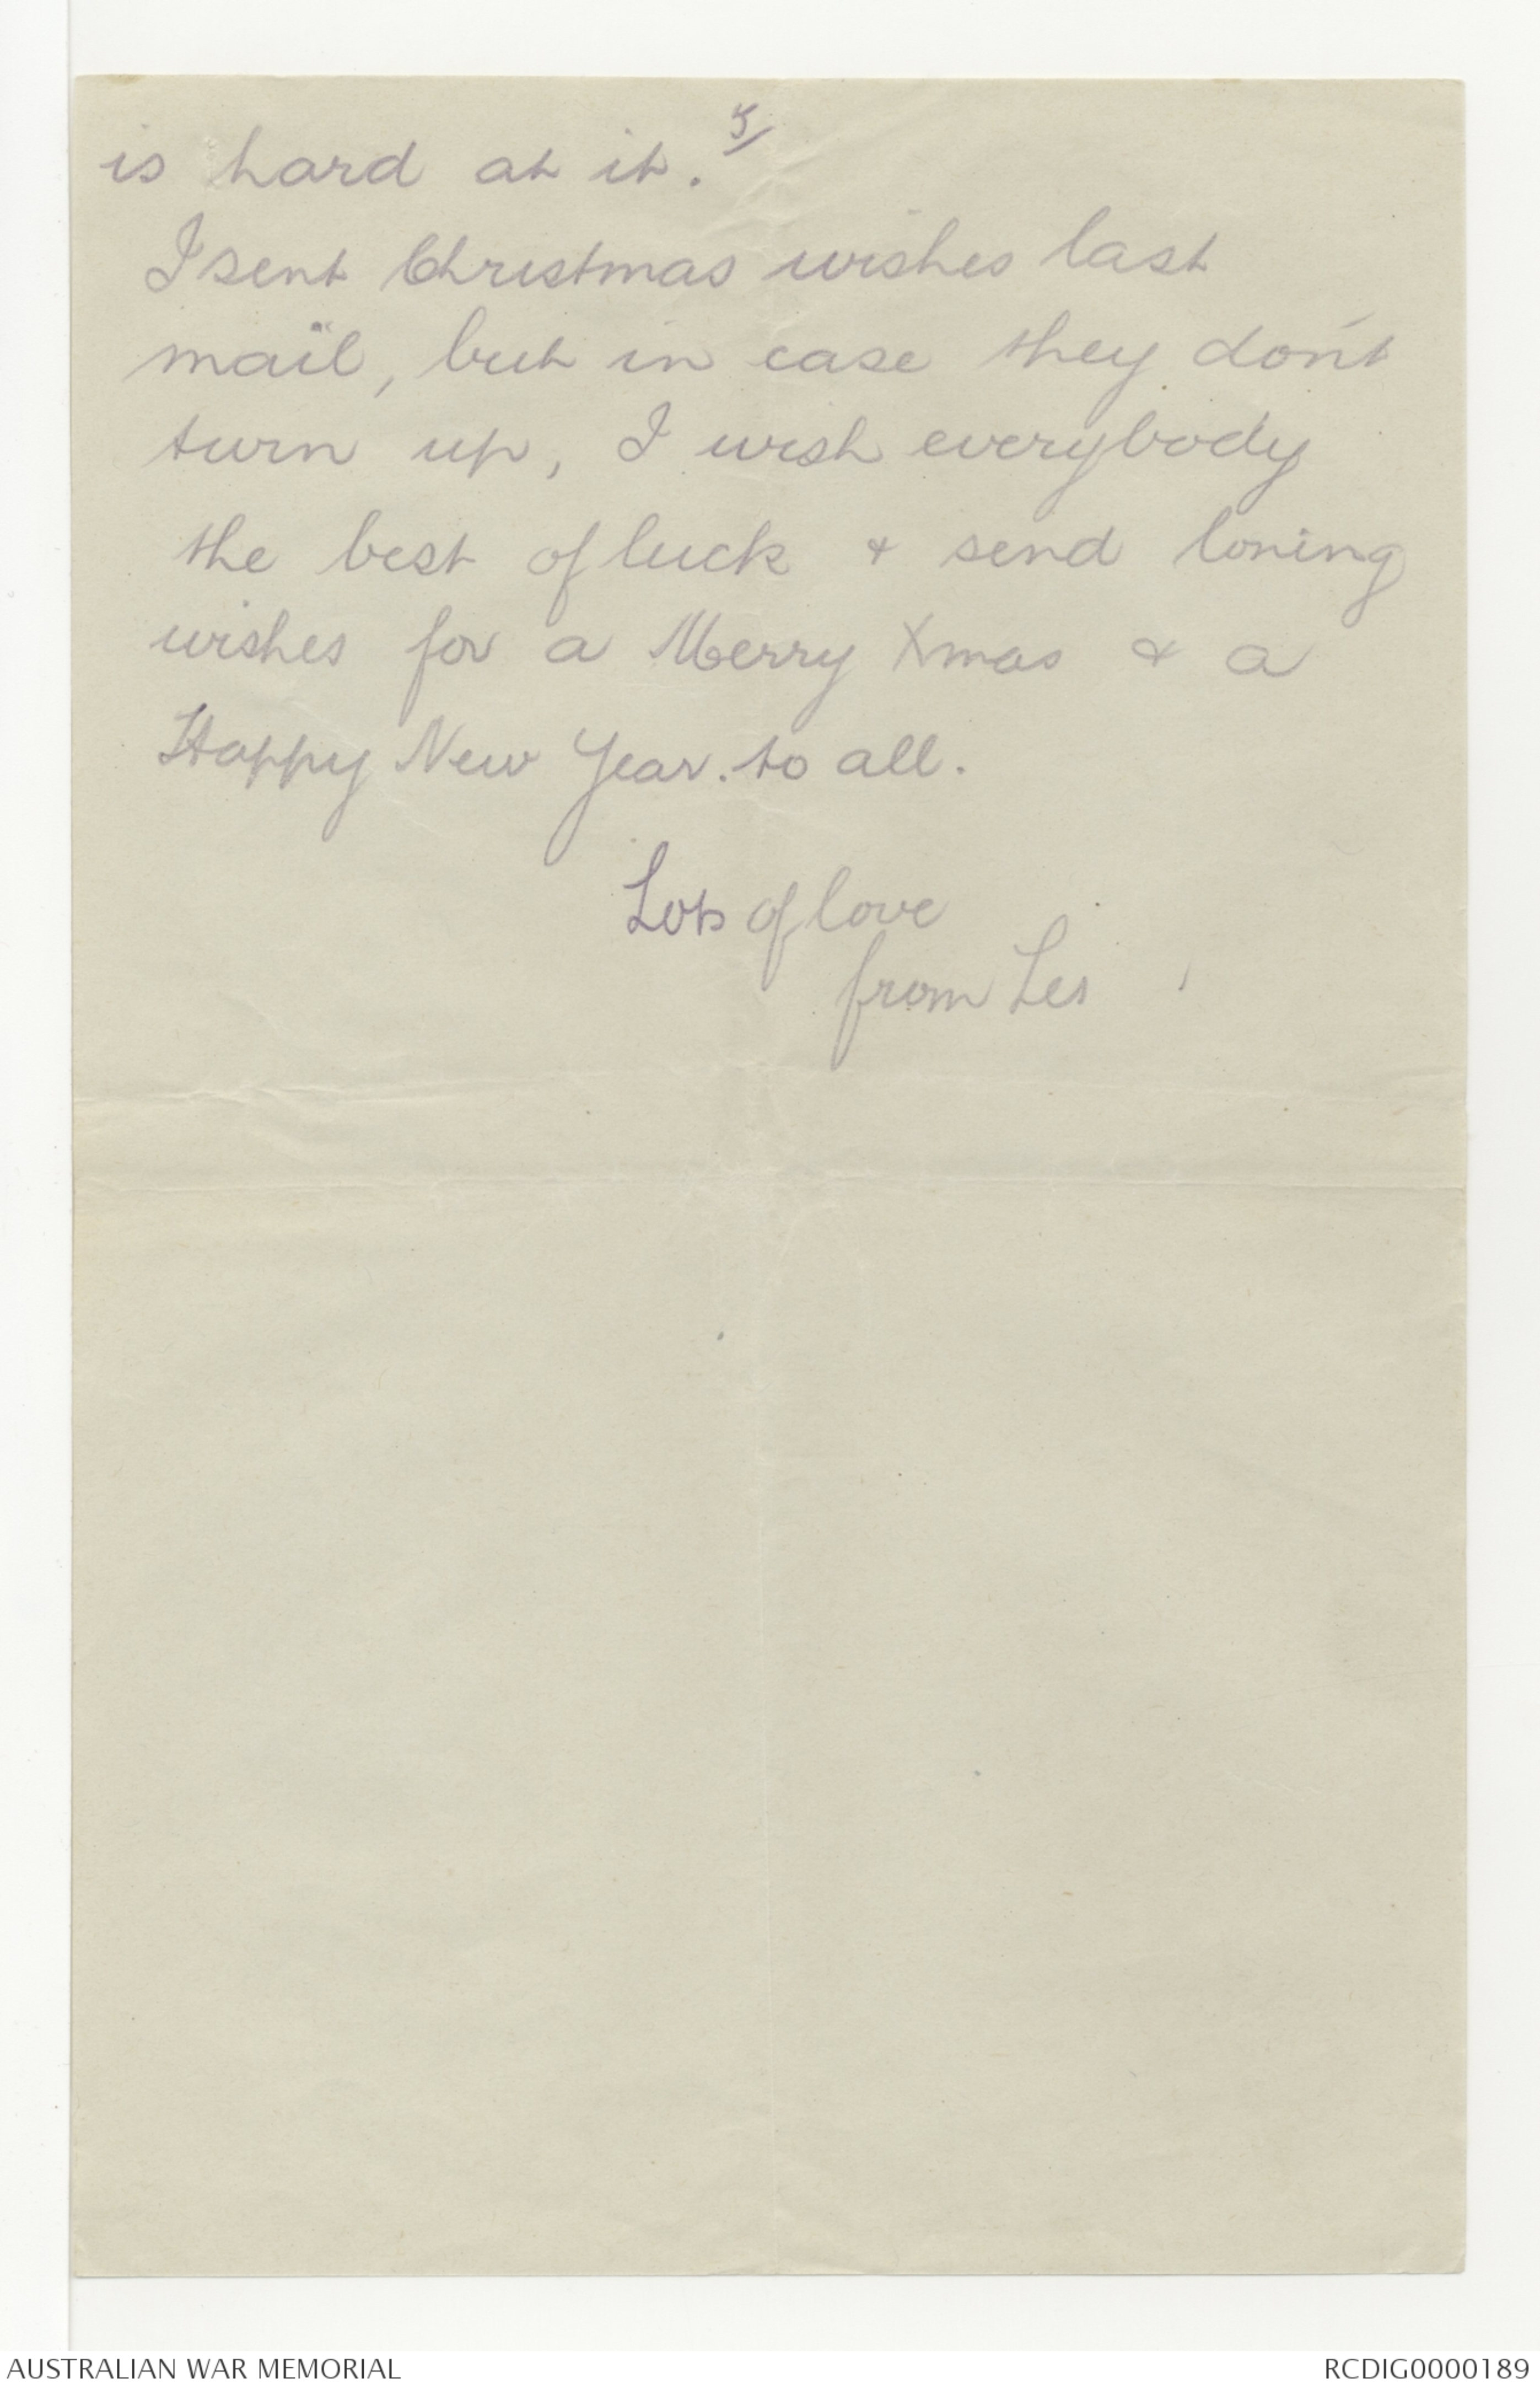 5/
is hard at it.
I sent Christmas wishes last
mail, but in case they don't
turn up, I wish everybody
the best of luck & send loving
wishes for a Merry Xmas & a
Happy New Year. to all.
Lots of love
from Les
AUSTRALIAN WAR MEMORIAL
RCDIG0000189